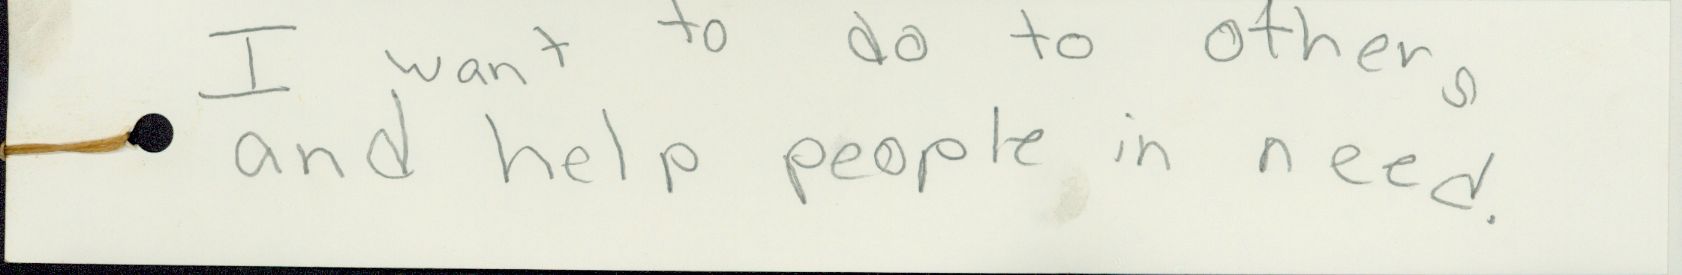 I want to do to others
and help people in need.